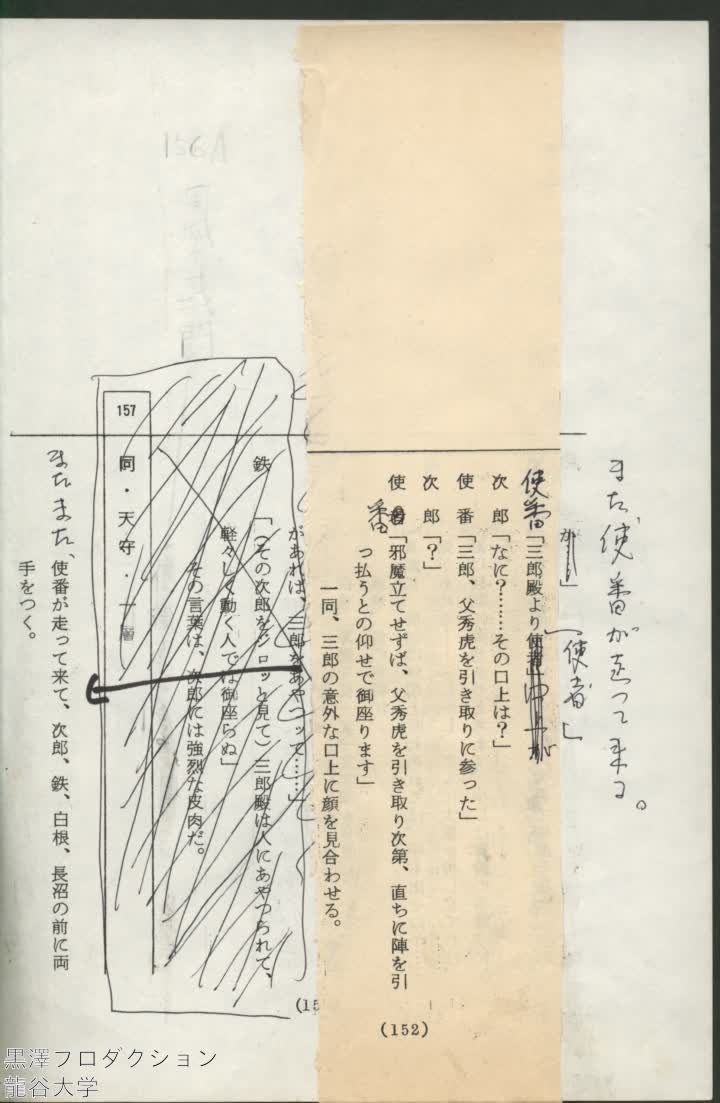 また、使番が走って来る。
か……」
「使者」
使番「三郎殿より使者」
次郎「なに?……その口上は?」
使番「三郎、父秀虎を引き取りに参った」
次郎「?」
使番「邪魔立てせずば、父秀虎を引き取り次第、直ちに陣を引
っ払うとの仰せで御座ります」
一同、三郎の意外な口上に顔を見合わせる。
(152)
があれば、三郎をあやつッて……」
鉄「(その次郎をジロッと見て)三郎殿は人にあやつられて、
軽々しく動く人では御座らぬ」
その言葉は、次郎には強烈な皮肉だ。
157 同・天守・一層
またまた、使番が走って来て、次郎、鉄、白根、長沼の前に両
手をつく。
156A
黒澤プロダクション
龍谷大学